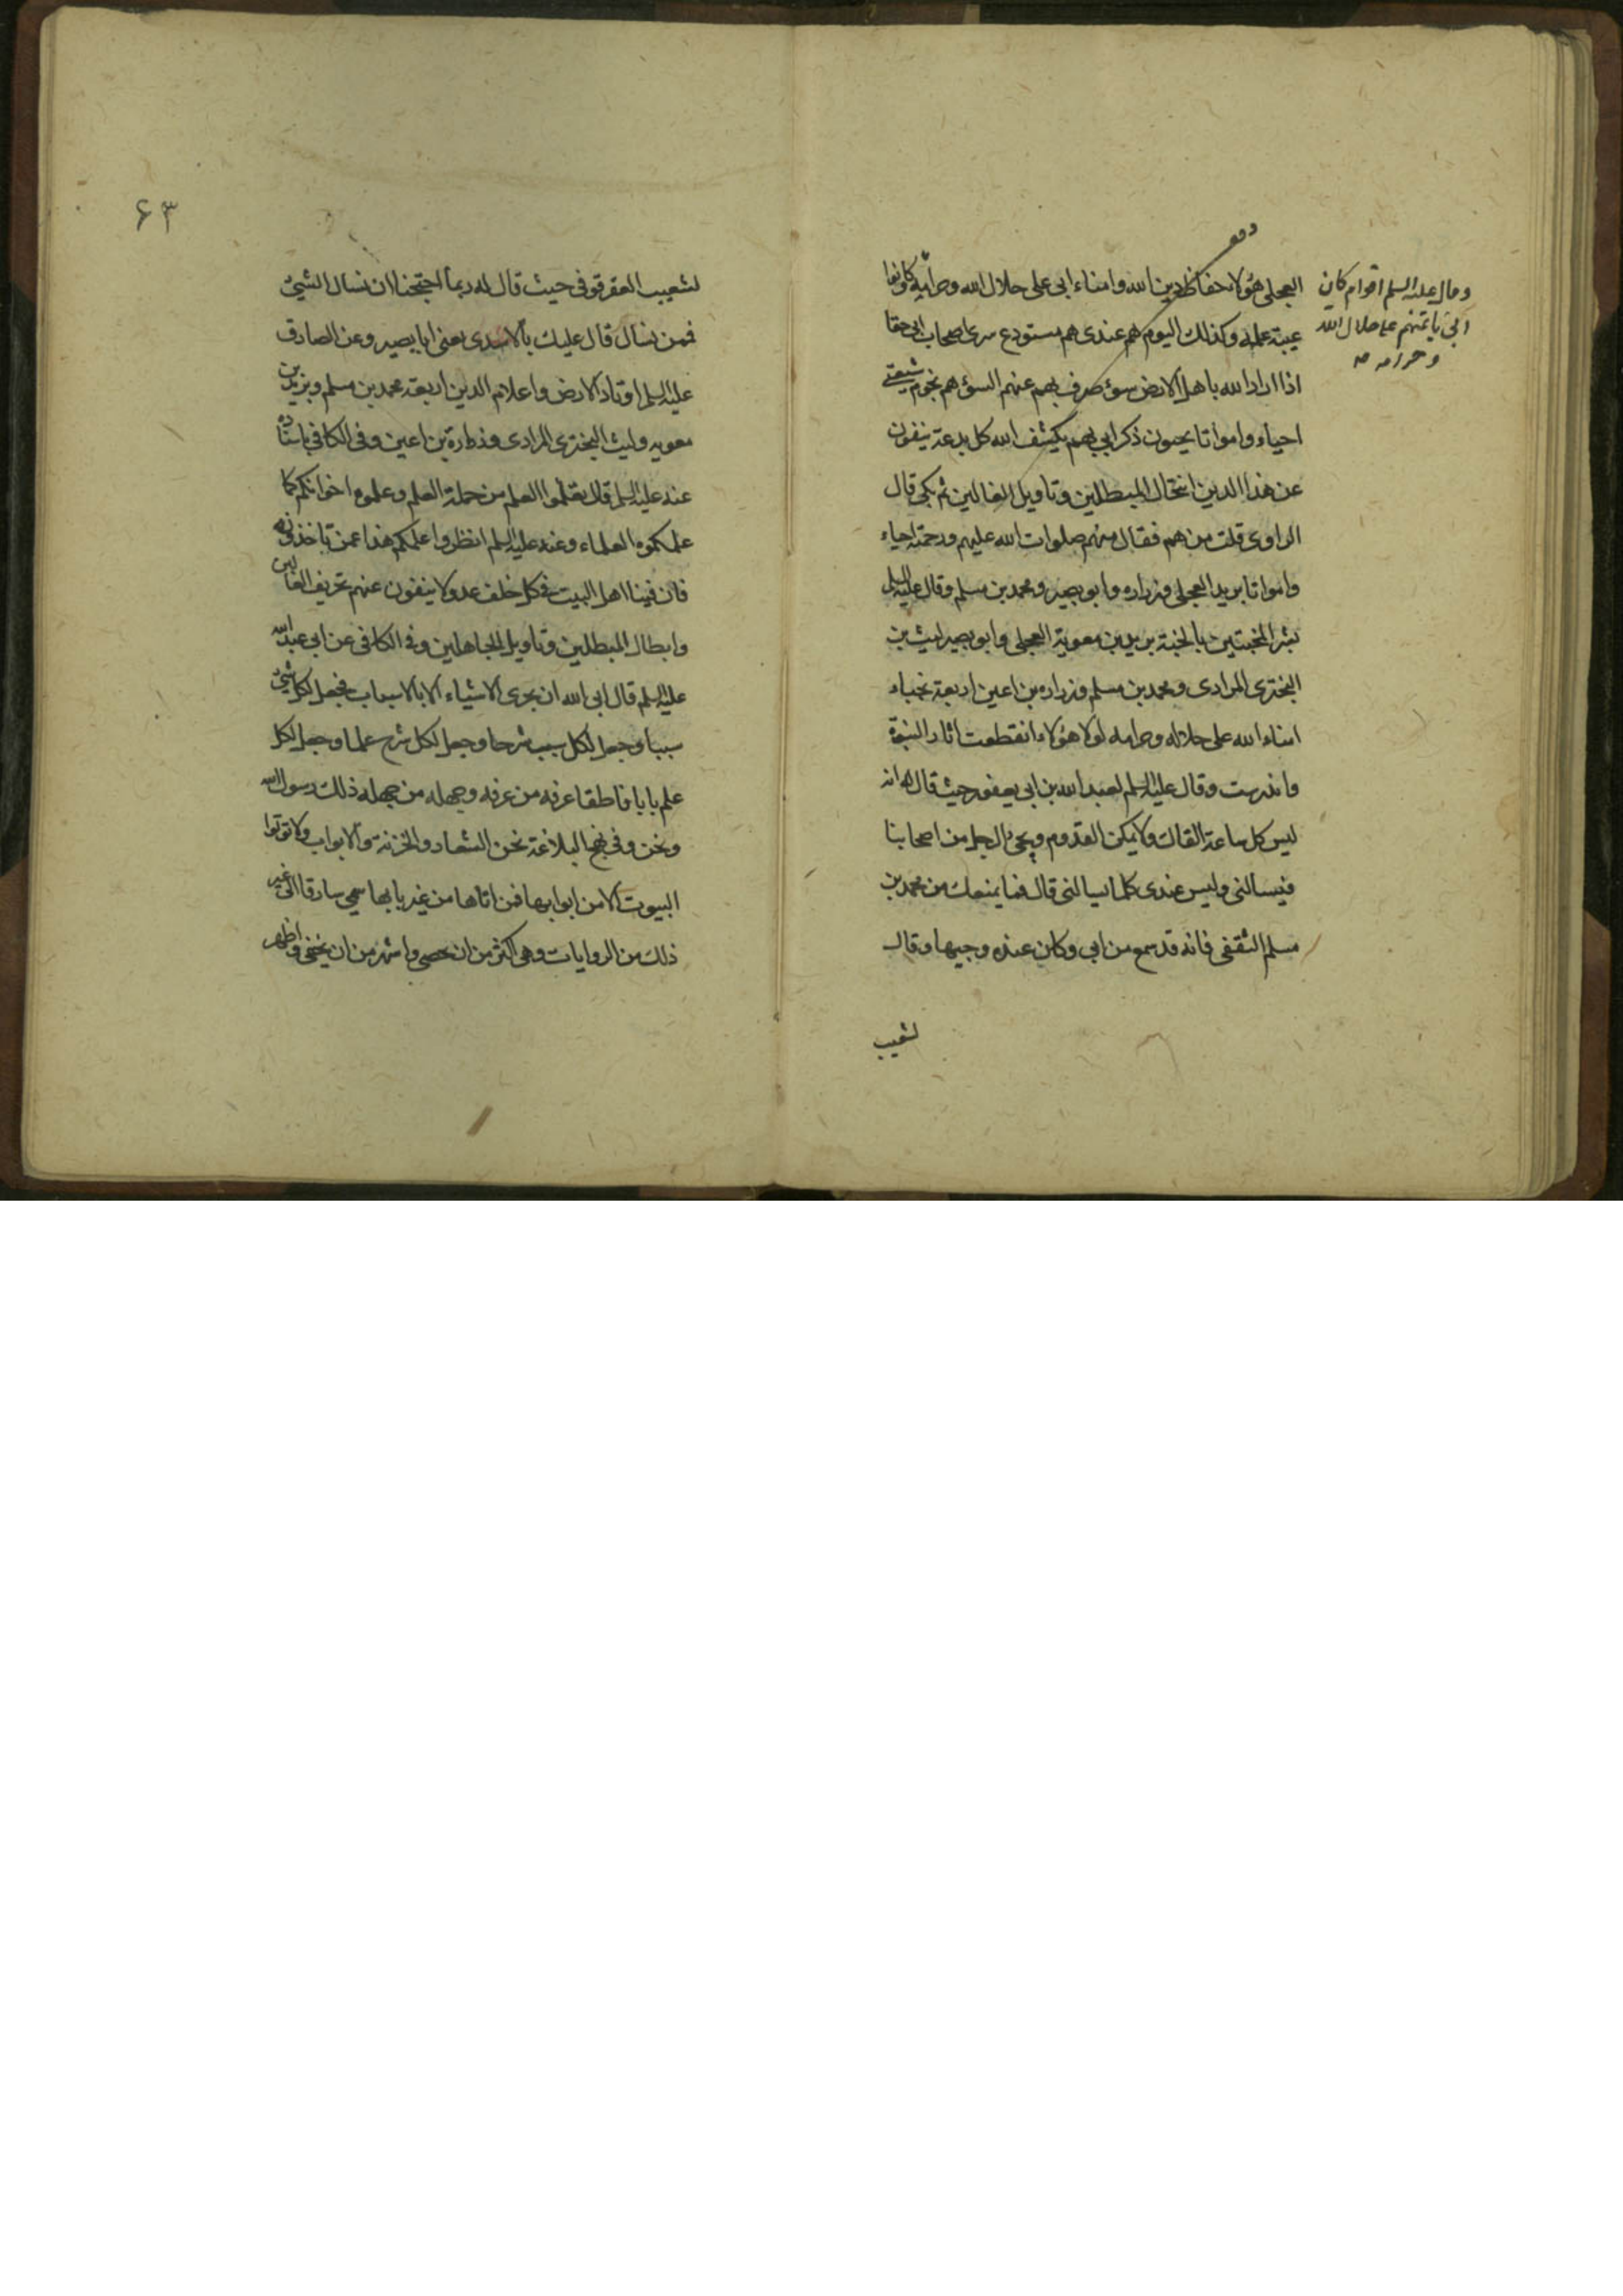 العجلى هؤلاء حفاظ دين الله وامناء ابى على حلال الله وحرامه كانوا
عيبة علمه وكذلك اليوم هم عندى هم مستودع سرى اصحاب ابى حقا
اذا اراد الله باهل الارض سوء صرف بهم عنهم السوء هم نجوم شيعتى
احياء وامواتا يحيون ذكر ابى بهم يكشف الله كل بدعة ينفون
عن هذا الدين انتحال المبطلين وتاويل الغالين ثم بكى قال
الراوى قلت من هم فقال منهم صلوات الله عليهم ورحمته احياء
وامواتا بريد العجلى وزراره وابو بصير ومحمد بن مسلم وقال عليه السلم
بشر المخبتين بالجنة بريد بن معوية العجلى وابو بصير ليث بن
البخترى المرادى ومحمد بن مسلم وزراره بن اعين اربعة نجباء
امناء الله على حلاله وحرامه لولا هؤلاء انقطعت اثار النبوة
واندرست وقال عليه السلم لعبد الله بن ابى يعفور حيث قال له انه
ليس كل ساعة القاك ولا يمكن القدوم ويجئ الرجل من اصحابنا
فيسالنى وليس عندى كلما يسالنى قال فما يمنعك من محمد بن
مسلم الثقفى فانه قد سمع من ابى وكان عنده وجيها وقال
لشعيب
وقال عليه السلم اقوام كان
ابى ياتمنهم على حلال الله
وحرامه صح
۶۳
لشعيب العقرقوفى حيث قال له ربما احتجنا ان نسال الشئ
فمن نسال قال عليك بالاسدى يعنى ابا بصير وعن الصادق
عليه السلم اوتاد الارض واعلام الدين اربعة محمد بن مسلم وبريد بن
معويه وليث البخترى المرادى وزرارة بن اعين وفى الكافى باسناده
عنه عليه السلم قال تعلموا العلم من حملة العلم وعلموه اخوانكم كما
علمكموه العلماء وعنه عليه السلم انظروا علمكم هذا عمن تاخذونه
فان فينا اهل البيت فى كل خلف عدولا ينفون عنهم تحريف الغالين
وابطال المبطلين وتاويل الجاهلين وفى الكافى عن ابى عبد الله
عليه السلم قال ابى الله ان يجرى الاشياء الا بالاسباب فجعل لكل شئ
سببا وجعل لكل سبب شرحا وجعل لكل شرح علما وجعل لكل
علم بابا ناطقا عرفه من عرفه وجهله من جهله ذلك رسول الله
ونحن وفى نهج البلاغة نحن الشعار والخزنة والابواب ولا توتوا
البيوت الا من ابوابها فمن اتاها من غير بابها سمى سارقا الى غير
ذلك من الروايات وهى اكثر من ان تحصى واشهر من ان يخفى واظهر